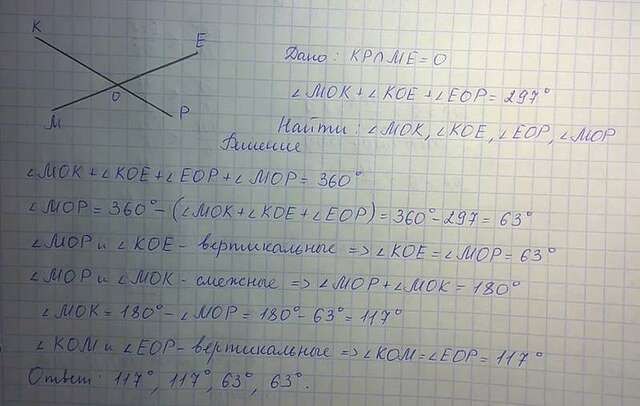 K
E
O
M
P
Дано: KP∩ME=O
∠MOK+∠KOE+∠EOP=297°
Найти: ∠MOK, ∠KOE, ∠EOP, ∠MOP
Решение
∠MOK+∠KOE+∠EOP+∠MOP=360°
∠MOP=360°-(∠MOK+∠KOE+∠EOP)=360°-297=63°
∠MOP и ∠KOE- вертикальные => ∠KOE=∠MOP=63°
∠MOP и ∠MOK- смежные => ∠MOP+∠MOK=180°
∠MOK=180°-∠MOP=180°-63°=117°
∠KOM и ∠EOP- вертикальные => ∠KOM=∠EOP=117°
Ответ: 117°, 117°, 63°, 63°.